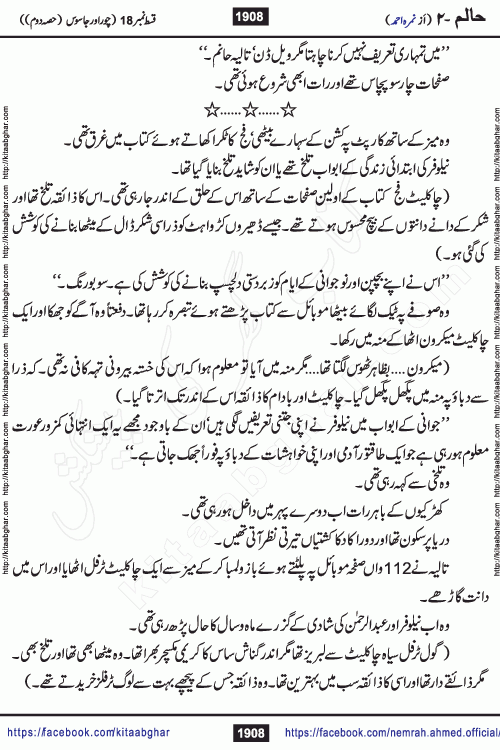 حالم -۲ (از نمرہ احمد)
1908
قسط نمبر 18 (چور اور جاسوس (حصہ دوم))
’’میں تمہاری تعریف نہیں کرنا چاہتا مگر ویل ڈن‘ تالیہ حانم۔‘‘
صفحات چار سو پچاس تھے اور رات ابھی شروع ہوئی تھی۔
☆......☆......☆
وہ میز کے ساتھ کارپٹ پہ کشن کے سہارے بیٹھی‘ فج کا ٹکڑا کھاتے ہوئے کتاب میں غرق تھی۔
نیلوفر کی ابتدائی زندگی کے ابواب تلخ تھے یا ان کو شاید تلخ بنایا گیا تھا۔
(چاکلیٹ فج کتاب کے اولین صفحات کے ساتھ اس کے حلق کے اندر جا رہی تھی۔ اس کا ذائقہ تلخ تھا اور
شکر کے دانے دانتوں کے بیچ محسوس ہوتے تھے۔ جیسے ڈھیروں کڑواہٹ کو ذرا سی شکر ڈال کے میٹھا بنانے کی کوشش
کی گئی ہو۔)
’’اس نے اپنے بچپن اور نوجوانی کے ایام کو زبردستی دلچسپ بنانے کی کوشش کی ہے۔ سو بورنگ۔‘‘
وہ صوفے پہ ٹیک لگائے بیٹھا موبائل سے کتاب پڑھتے ہوئے تبصرہ کر رہا تھا۔ دفعتاً وہ آگے کو جھکا اور ایک
چاکلیٹ میکرون اٹھا کے منہ میں رکھا۔
(میکرون .... بظاہر ٹھوس لگتا تھا.... مگر منہ میں آیا تو معلوم ہوا کہ اس کی خستہ بیرونی تہہ کافی نہ تھی۔ کہ ذرا
سے دباؤ پہ منہ میں پگھل پگھل گیا۔ چاکلیٹ اور بادام کا ذائقہ اس کے اندر تک اترتا گیا۔)
’’جوانی کے ابواب میں نیلوفر نے اپنی جتنی تعریفیں لکھی ہیں‘ ان کے باوجود مجھے یہ ایک انتہائی کمزور عورت
معلوم ہو رہی ہے جو ایک طاقتور آدمی اور اپنی خواہشات کے دباؤ پہ فوراً جھک جاتی ہے۔‘‘
وہ تلخی سے کہہ رہی تھی۔
کھڑکیوں کے باہر رات اب دوسرے پہر میں داخل ہو رہی تھی۔
دریا پرسکون تھا اور دور اکا دکا کشتیاں تیرتی نظر آتی تھیں۔
تالیہ نے 112 واں صفحہ موبائل پہ پلٹتے ہوئے بازو لمبا کر کے میز سے ایک چاکلیٹ ٹرفل اٹھایا اور اس میں
دانت گاڑھے۔
وہ اب نیلوفر اور عبدالرحمٰن کی شادی کے گزرے ماہ و سال کا حال پڑھ رہی تھی۔
(گول ٹرفل سیاہ چاکلیٹ سے لبریز تھا مگر اندر گناش ساس کا کریمی مکسچر بھرا تھا۔ وہ میٹھا بھی تھا اور تلخ بھی۔
مگر ذائقے دار تھا اور اسی کا ذائقہ سب میں بہترین تھا۔ وہ ذائقہ جس کے پیچھے بہت سے لوگ ٹرفلز خریدتے تھے۔)
https://facebook.com/kitaabghar
1908
https://facebook.com/nemrah.ahmed.official/
http://kitaabghar.com http://kitaabghar.com http://kitaabghar.com http://kitaabghar.com http://kitaabghar.com
http://kitaabghar.com http://kitaabghar.com http://kitaabghar.com http://kitaabghar.com http://kitaabghar.com